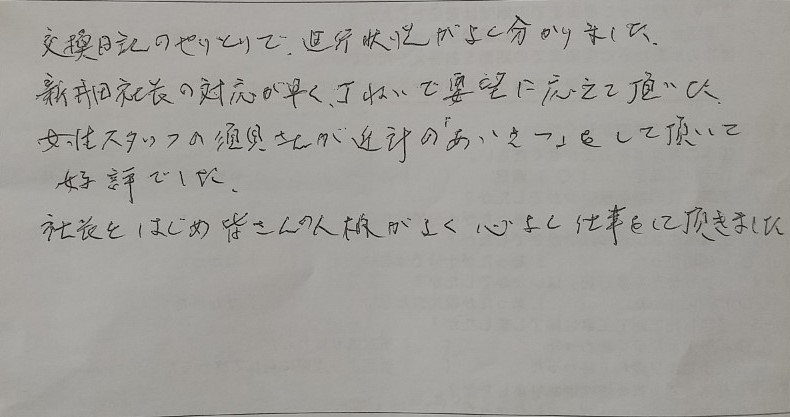 交換日記のやりとりで、進行状況がよく分かりました。
新井田社長の対応が早く、丁ねいで要望に応えて頂いた。
女性スタッフの須貝さんが近計の「あいさつ」をして頂いて
好評でした。
社長をはじめ皆さんの人様がよく心よく仕事をして頂きました